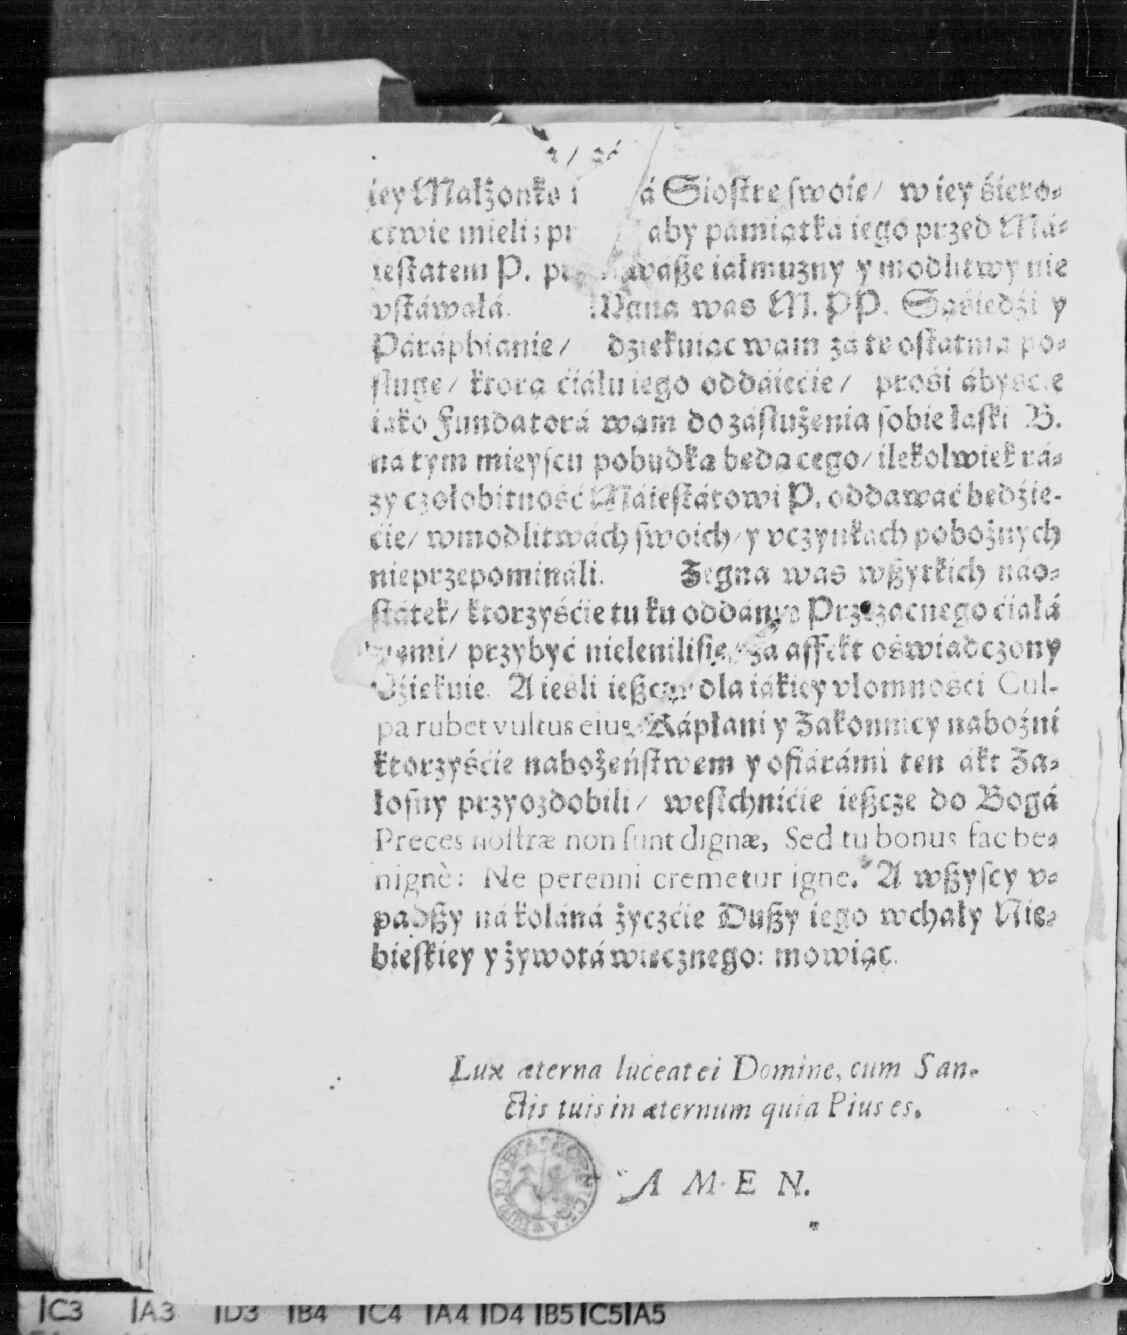 iey Małżonkę á Siostrę swoię / w iey śiero-
ctwie mieli; aby pámiątká iego przed Má-
iestatem P. wásze iáłmużny y modlitwy nie
vstáwáłá. Żegna was M. PP. Sąśiedźi y
Páráphianie / dziękuiąc wam zá tę ostatnią po-
sługę / ktorą ćiáłu iego oddáiećie / prośi ábyśćie
iáko Fundatorá wam do zásłużenia sobie łáski B.
na tym mieyscu pobudką będącego / ilekolwiek rá-
zy czołobitność Máiestátowi P. oddawáć będźie-
ćie / w modlitwách swoich / y vczynkách pobożnych
nieprzepomináli. Żegna was wszytkich náo-
státek / ktorzyśćie tu ku oddániu Przezacnego ćiáłá
źiemi / przybyć nielenilisię, zá affekt oświadczony
Dźiękuie. A iesli ieszcze dla iákiey vłomnośći Cul-
pa rubet vultus eius Kápłani y Zakonnicy nabożni
ktorzyśćie nabożeństwem y ofiárámi ten ákt Ża-
łosny przyozdobili / westchnićie ieszcze do Bogá
Preces nostræ non sunt dignæ, Sed tu bonus fac be-
nignè: Ne perenni cremetur igne. A wszyscy v-
padszy ná koláná życzćie Duszy iego wchały Nie-
bieskiey y żywotá wiecznego: mowiąc.
Lux æterna luceat ei Domine, cum San-
ctis tuis in æternum quia Pius es.
A M E N.
C3 A3 D3 B4 C4 A4 D4 B5 C5 A5